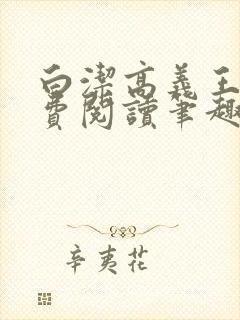 白潔高義王
費閱讀筆趣
辛夷花